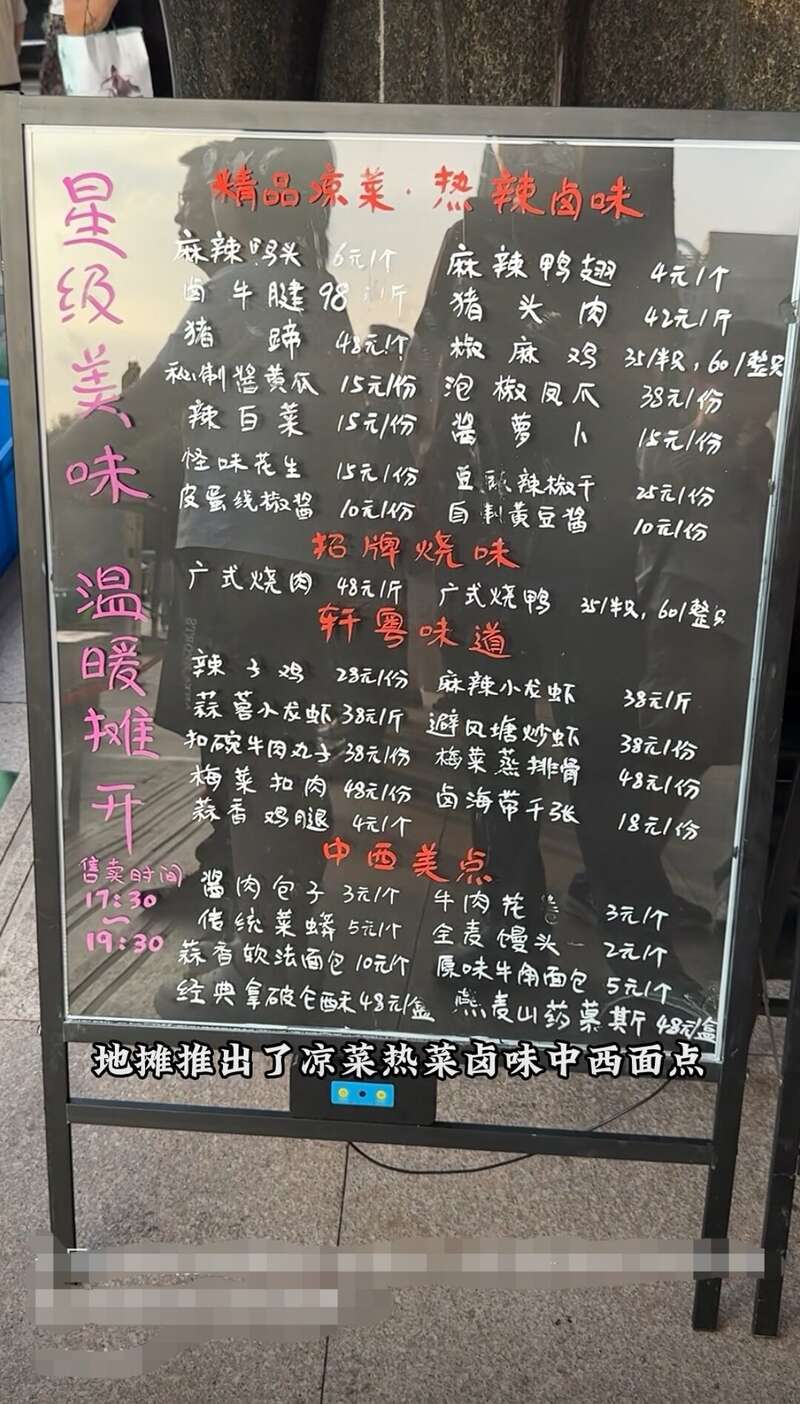 星级美味 温暖摊开
售卖时间
17:30
~
19:30
精品凉菜·热辣卤味
麻辣鸭头 6元/个 麻辣鸭翅 4元/个
卤牛腱 98元/斤 猪头肉 42元/斤
猪蹄 48元/个 椒麻鸡 35/半只,60/整只
秘制酱黄瓜 15元/份 泡椒凤爪 38元/份
辣白菜 15元/份 酱萝卜 15元/份
怪味花生 15元/份 豆豉辣椒干 25元/份
皮蛋线椒酱 10元/份 自制黄豆酱 10元/份
招牌烧味
广式烧肉 48元/斤 广式烧鸭 35/半只,60/整只
轩粤味道
辣子鸡 28元/份 麻辣小龙虾 38元/斤
蒜蓉小龙虾 38元/斤 避风塘炒虾 38元/份
扣碗牛肉丸子 38元/份 梅菜蒸排骨 48元/份
梅菜扣肉 48元/份 卤海带千张 18元/份
蒜香鸡腿 4元/个
中西美点
酱肉包子 3元/个 牛肉花 3元/个
传统菜蟒 5元/个 全麦馒头 2元/个
蒜香软法面包 10元/个 原味牛角面包 5元/个
经典拿破仑酥 48元/盒 燕麦山药慕斯 48元/盒
地摊推出了凉菜热菜卤味中西面点